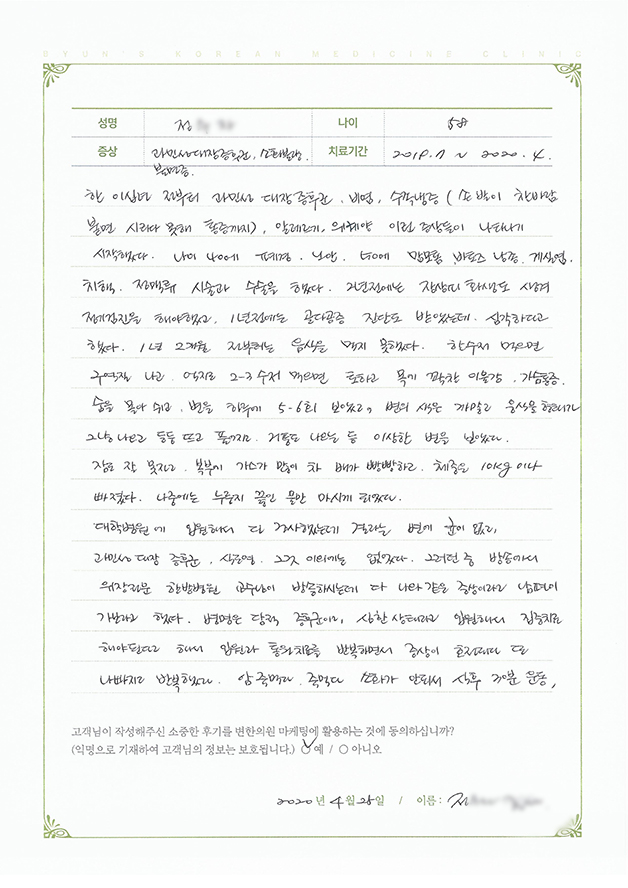 BYUN'S KOREAN MEDICINE CLINIC
성명 정 나이 58
증상 과민성대장증후군, 소화불량, 치료기간 2019. ~ 2020. 4.
복명증.
한 이십년 전부터 과민성 대장증후군, 비염, 수족냉증 (손발이 찬바람
불면 시리다 못해 통증까지), 알레르기, 이런 증상들이 나타나기
시작했다. 나이 40에 폐경, 노안, 50에 망모름, 난증, 게실염,
치핵, 정맥류 시술과 수술을 했다. 2년전에는 장상피 화생도 생겨
정기검진을 해야했고, 1년전에는 골다공증 진단도 받았는데, 심각하다고
했다. 1년 2개월 전부터는 음식을 먹지 못했다. 한수저 먹으면
구역질 나고, 억지로 2-3수저 먹으면 토하고 목에 꽉찬 이물감, 가슴통증,
숨을 몰아 쉬고, 변을 하루에 5-6회 보았고, 변의 색은 까맣고 음식물 형태가
그냥 나오고 둥둥 뜨고 풀어지고, 거품도 나오는 등 이상한 변을 보았다.
잠도 잘 못자고, 복부에 가스가 많이 차 배가 빵빵하고, 체중은 10kg이나
빠졌다. 나중에는 누룽지 끓인 물만 마시게 되었다.
대학병원에 입원하여 다 검사했는데 결과는 변에 균이 없고,
과민성 대장 증후군, 식도염, 그것 이외에는 없었다. 그러던 중 방송에서
위장전문 한방병원 교수님이 방송하시는데 다 나와 같은 증상이라고 남편이
가보라고 했다. 병명은 담적 증후군이고, 심한 상태라고 입원해서 집중치료
해야된다고 해서 입원과 통원치료를 반복하면서 증상이 호전되다 또
나빠지고 반복했다. 암죽먹다, 죽먹다 소화가 안되서 식후 30분 운동,
고객님이 작성해주신 소중한 후기를 변한의원 마케팅에 활용하는 것에 동의하십니까?
(익명으로 기재하여 고객님의 정보는 보호됩니다.) ○ 예 / ○ 아니오
2020년 4월 28일 / 이름 : 정